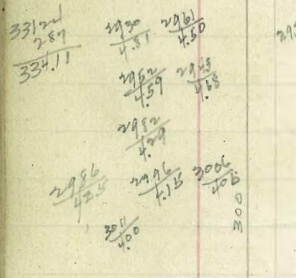 33122
289
334.11
2930
4.81
2961
4.50
2952
4.59
2943
4.68
2982
4.29
2986
4.25
2996
4.15
3006
4.05
3011
4.00
300